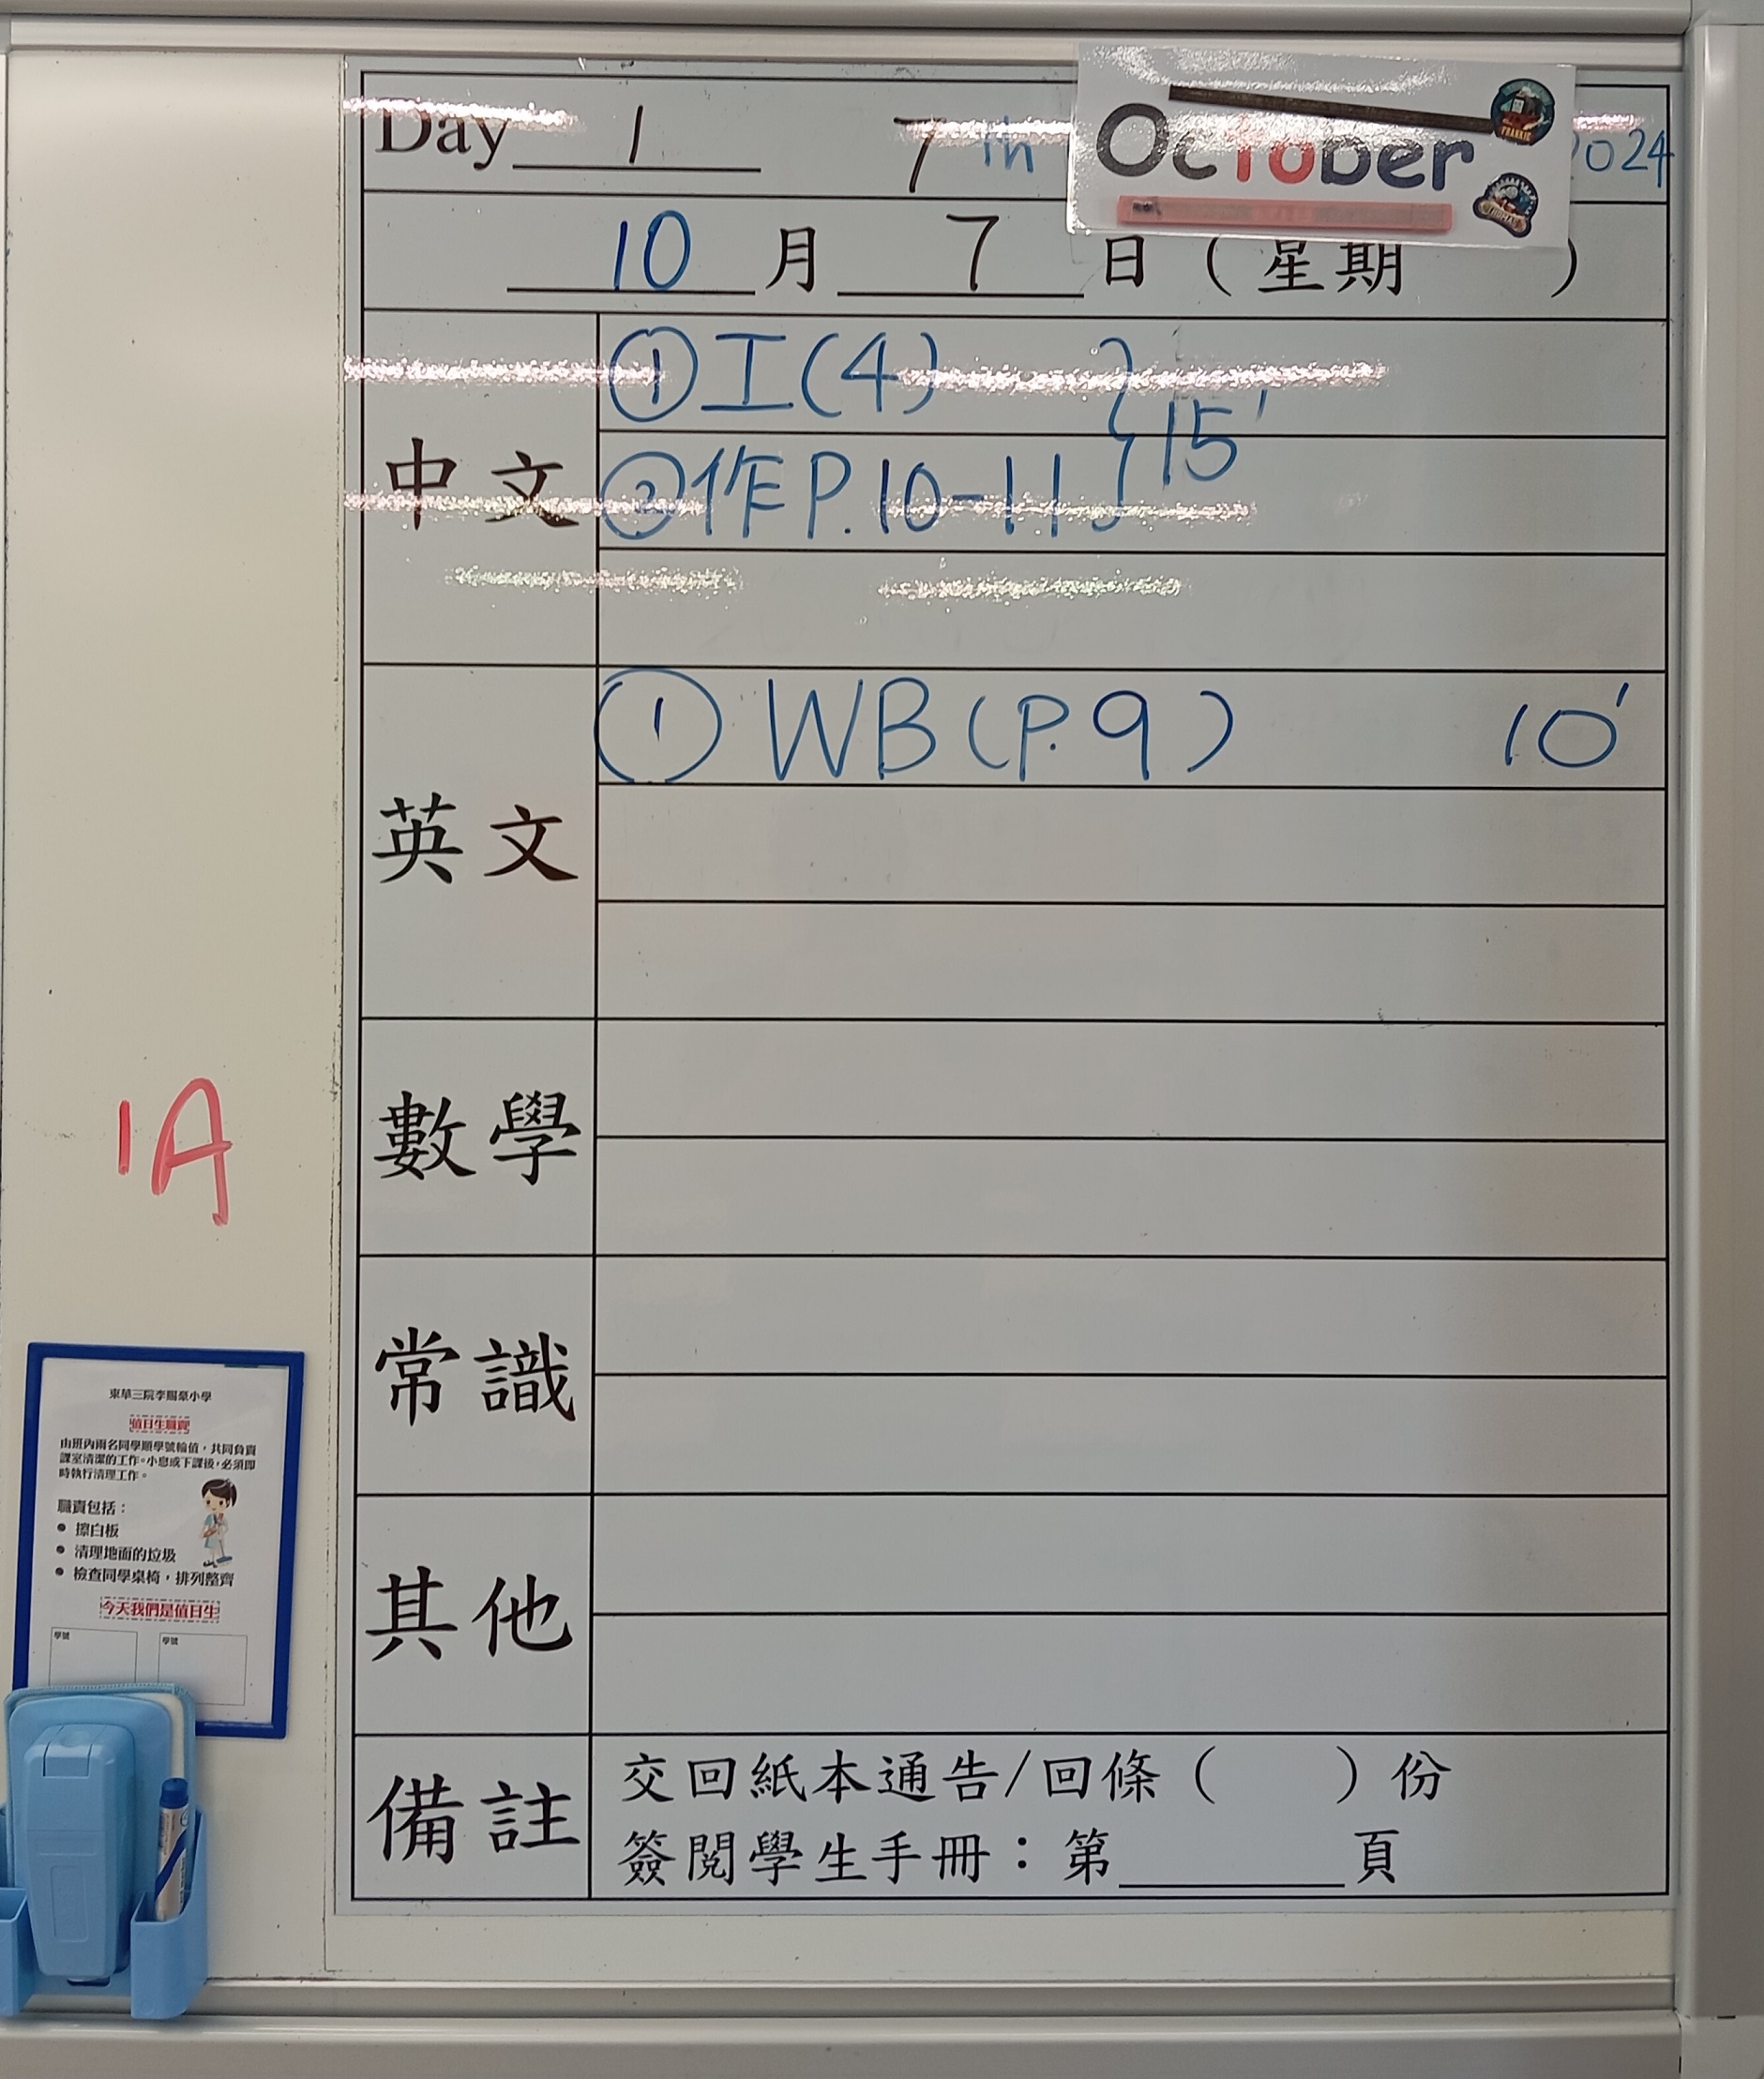 Day 1 7th October 2024
10 月 7 日 ( 星期 )
中文
① 工(4)
② 作 P.10-11
} 15'
英文
① WB (P.9) 10'
數學
常識
其他
備註
交回紙本通告/回條 ( ) 份
簽閱學生手冊：第 頁
1A
東華三院李賜豪小學
值日生職責
由班內兩名同學順學號輪值，共同負責
課室清潔的工作。小息或下課後，必須即
時執行清理工作。
職責包括：
• 擦白板
• 清理地面的垃圾
• 檢查同學桌椅，排列整齊
今天我們是值日生
學號 學號